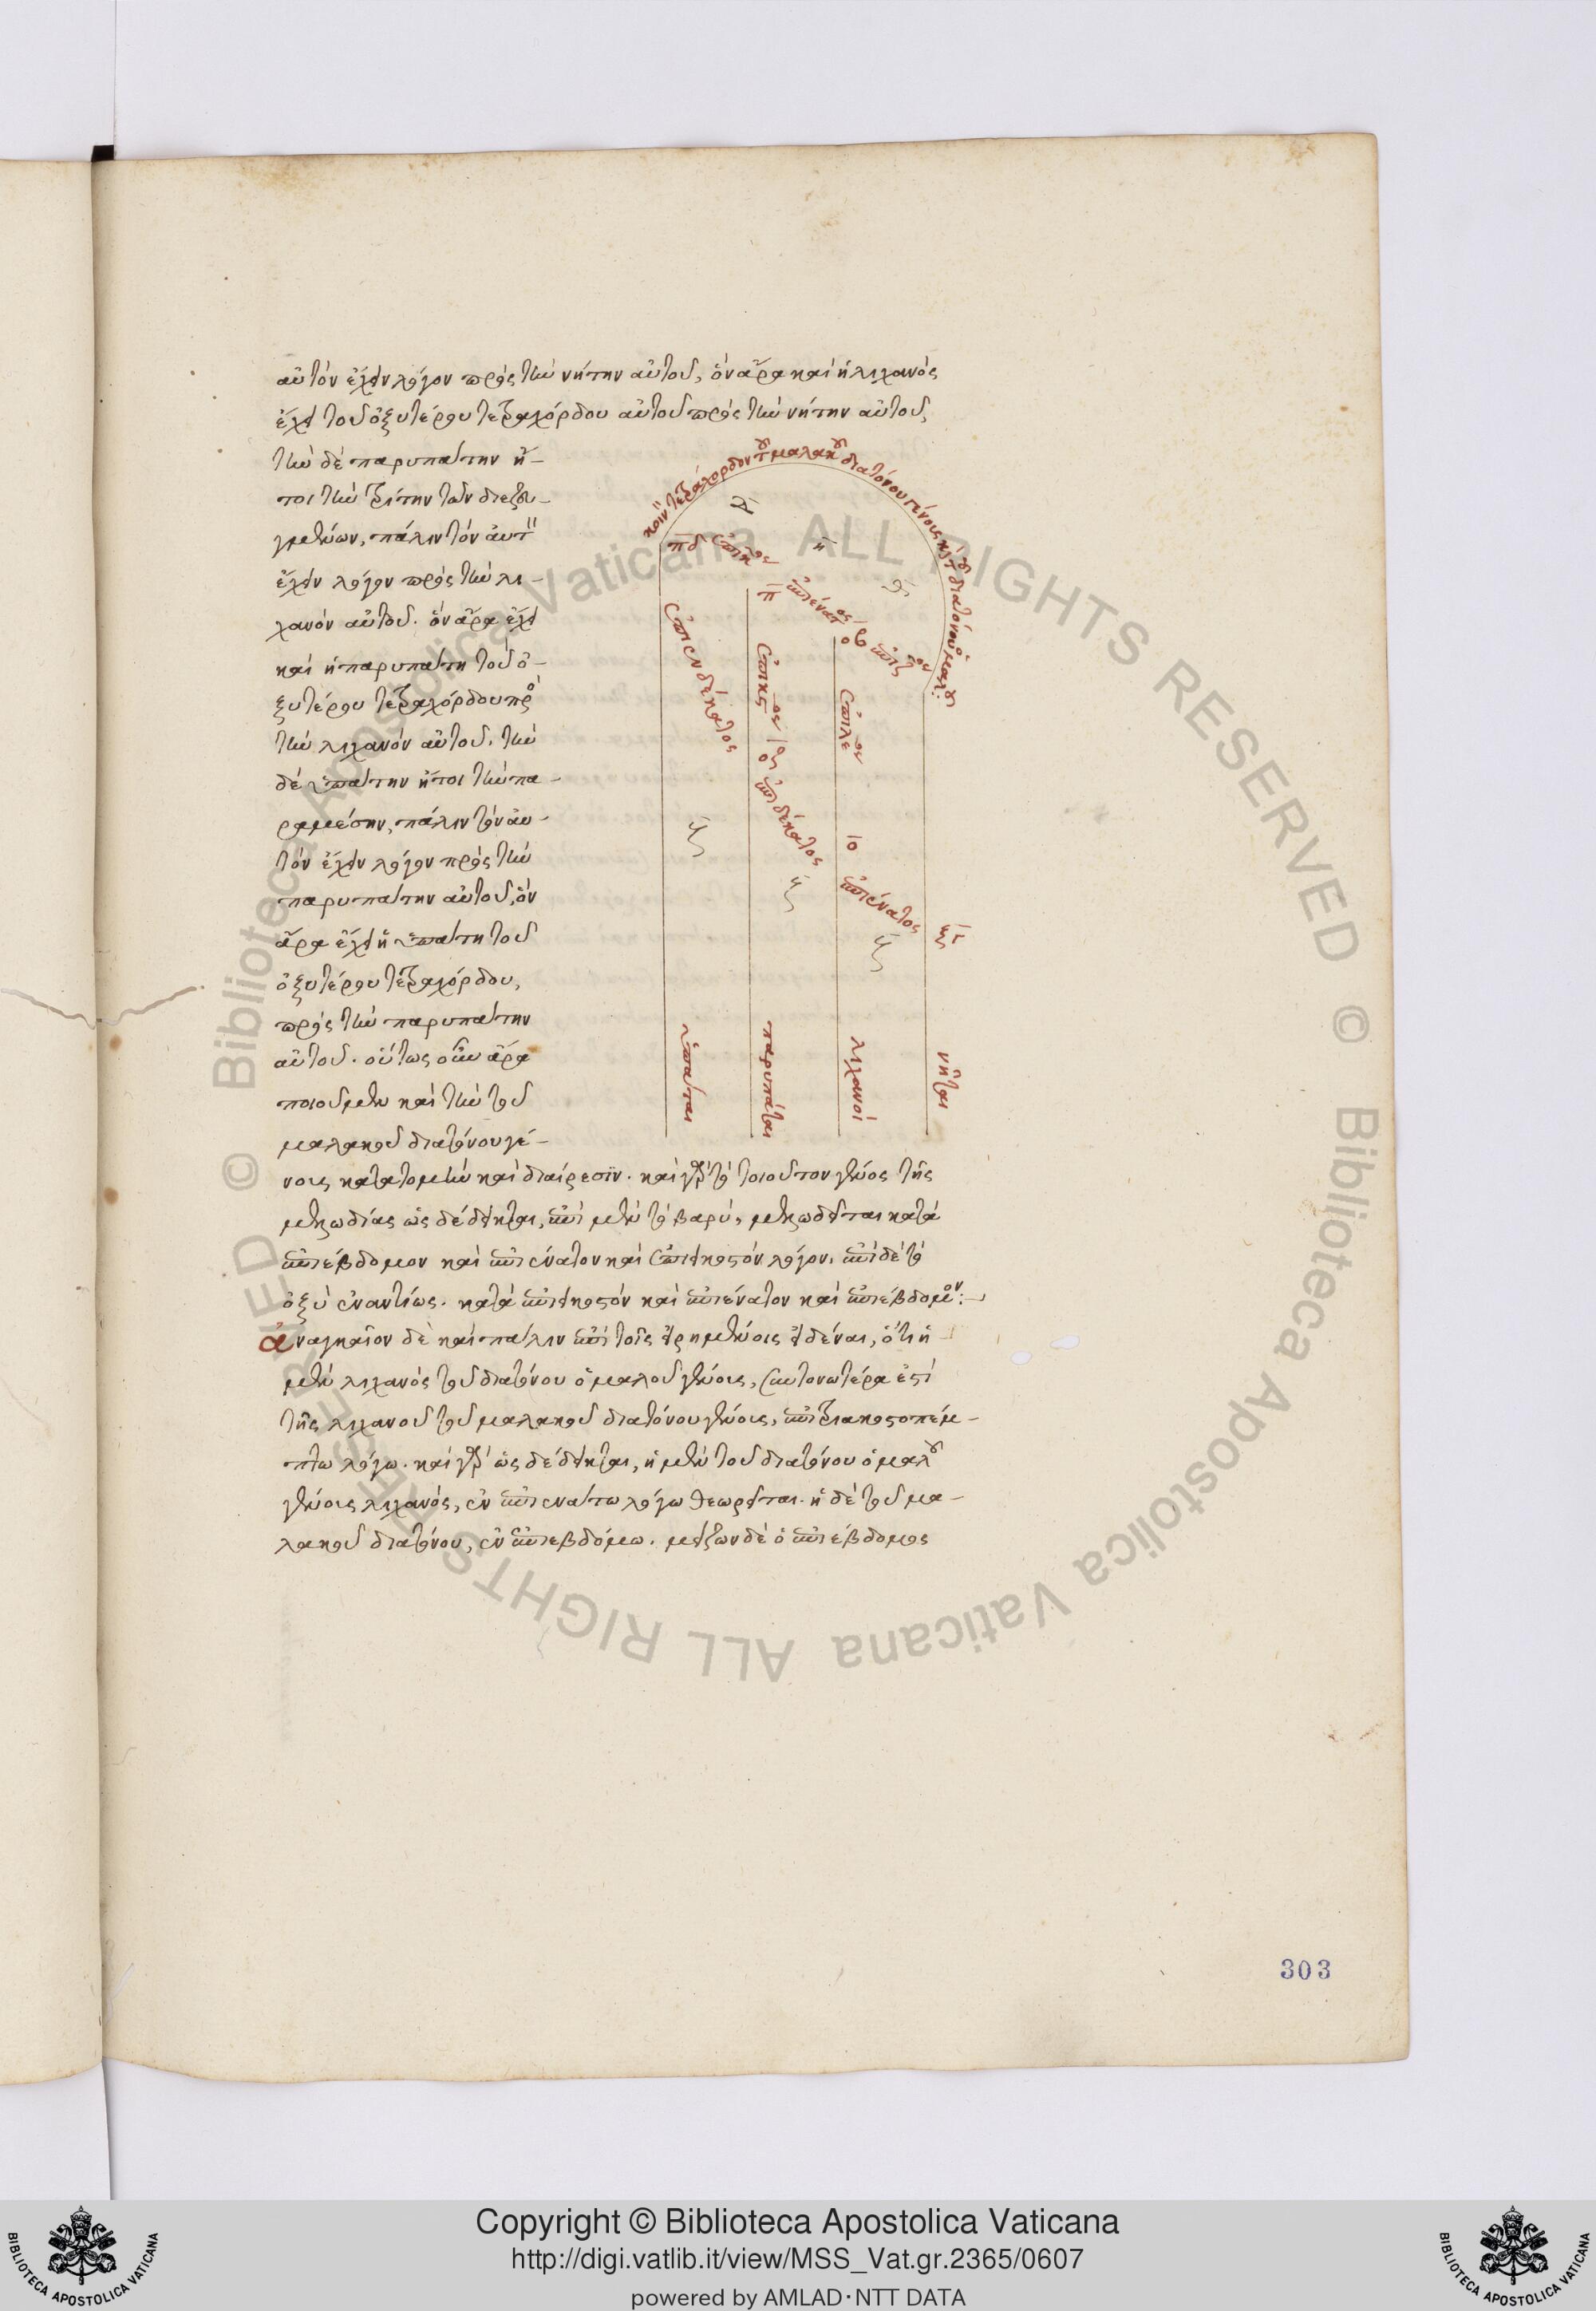 αὐτὸν ἔχειν λόγον πρὸς τὴν νήτην αὐτοῦ, ὃν ἄρα καὶ ἡ λιχανὸς
ἔχει τοῦ ὀξυτέρου τετραχόρδου αὐτοῦ πρὸς τὴν νήτην αὐτοῦ,
τὴν δὲ παρυπάτην ἤ-
τοι τὴν τρίτην τῶν διεζευ-
γμένων, πάλιν τὸν αὐτὸν
ἔχειν λόγον πρὸς τὴν λι-
χανὸν αὐτοῦ. ὃν ἄρα ἔχει
καὶ ἡ παρυπάτη τοῦ ὀ-
ξυτέρου τετραχόρδου πρὸς
τὴν λιχανὸν αὐτοῦ. τὴν
δὲ ὑπάτην ἤτοι τὴν πα-
ραμέσην, πάλιν τὸν αὐ-
τὸν ἔχειν λόγον πρὸς τὴν
παρυπάτην αὐτοῦ, ὃν
ἄρα ἔχει ἡ ὑπάτη τοῦ
ὀξυτέρου τετραχόρδου,
πρὸς τὴν παρυπάτην
αὐτοῦ. οὕτως οὖν ἄρα
ποιοῦμεν καὶ τὴν τοῦ
μαλακοῦ διατόνου γέ-
νους κατατομὴν καὶ διαίρεσιν. καὶ γὰρ τὸ τοιοῦτον γένος τῆς
μελῳδίας ὡς δέδεικται, ἐπὶ μὲν τὸ βαρὺ, μελῳδεῖται κατὰ
ἐπιέβδομον καὶ ἐπιένατον καὶ ἐπιεικοστὸν λόγον. ἐπὶ δὲ τὸ
ὀξὺ ἐναντίως. κατὰ ἐπιεικοστὸν καὶ ἐπιένατον καὶ ἐπιέβδομον:
ἀναγκαῖον δὲ καὶ πάλιν ἐπὶ τοῖς εἰρημένοις εἰδέναι, ὅτι ἡ
μὲν λιχανὸς τοῦ διατόνου ὁμαλοῦ γένους, συντονωτέρα ἐστὶ
τῆς λιχανοῦ τοῦ μαλακοῦ διατόνου γένους, ἐπιτριακοστοπέμ-
πτω λόγω. καὶ γὰρ ὡς δέδεικται, ἡ μὲν τοῦ διατόνου ὁμαλοῦ
γένους λιχανὸς, ἐν ἐπιενάτω λόγω θεωρεῖται. ἡ δὲ τοῦ μα-
λακοῦ διατόνου, ἐν ἐπιεβδόμω. μείζων δὲ ὁ ἐπιέβδομος
πδ
ἐπιενδέκατος
ἐπιδέκατος
ἐπιένατος
ξγ
ὑπάται
παρυπάται
λιχανοί
νῆται
303
© Biblioteca Apostolica Vaticana ALL RIGHTS RESERVED © Biblioteca Apostolica Vaticana ALL RIGHTS RESERVED
BIBLIOTECA APOSTOLICA VATICANA
Copyright © Biblioteca Apostolica Vaticana
http://digi.vatlib.it/view/MSS_Vat.gr.2365/0607
powered by AMLAD·NTT DATA
BIBLIOTECA APOSTOLICA VATICANA